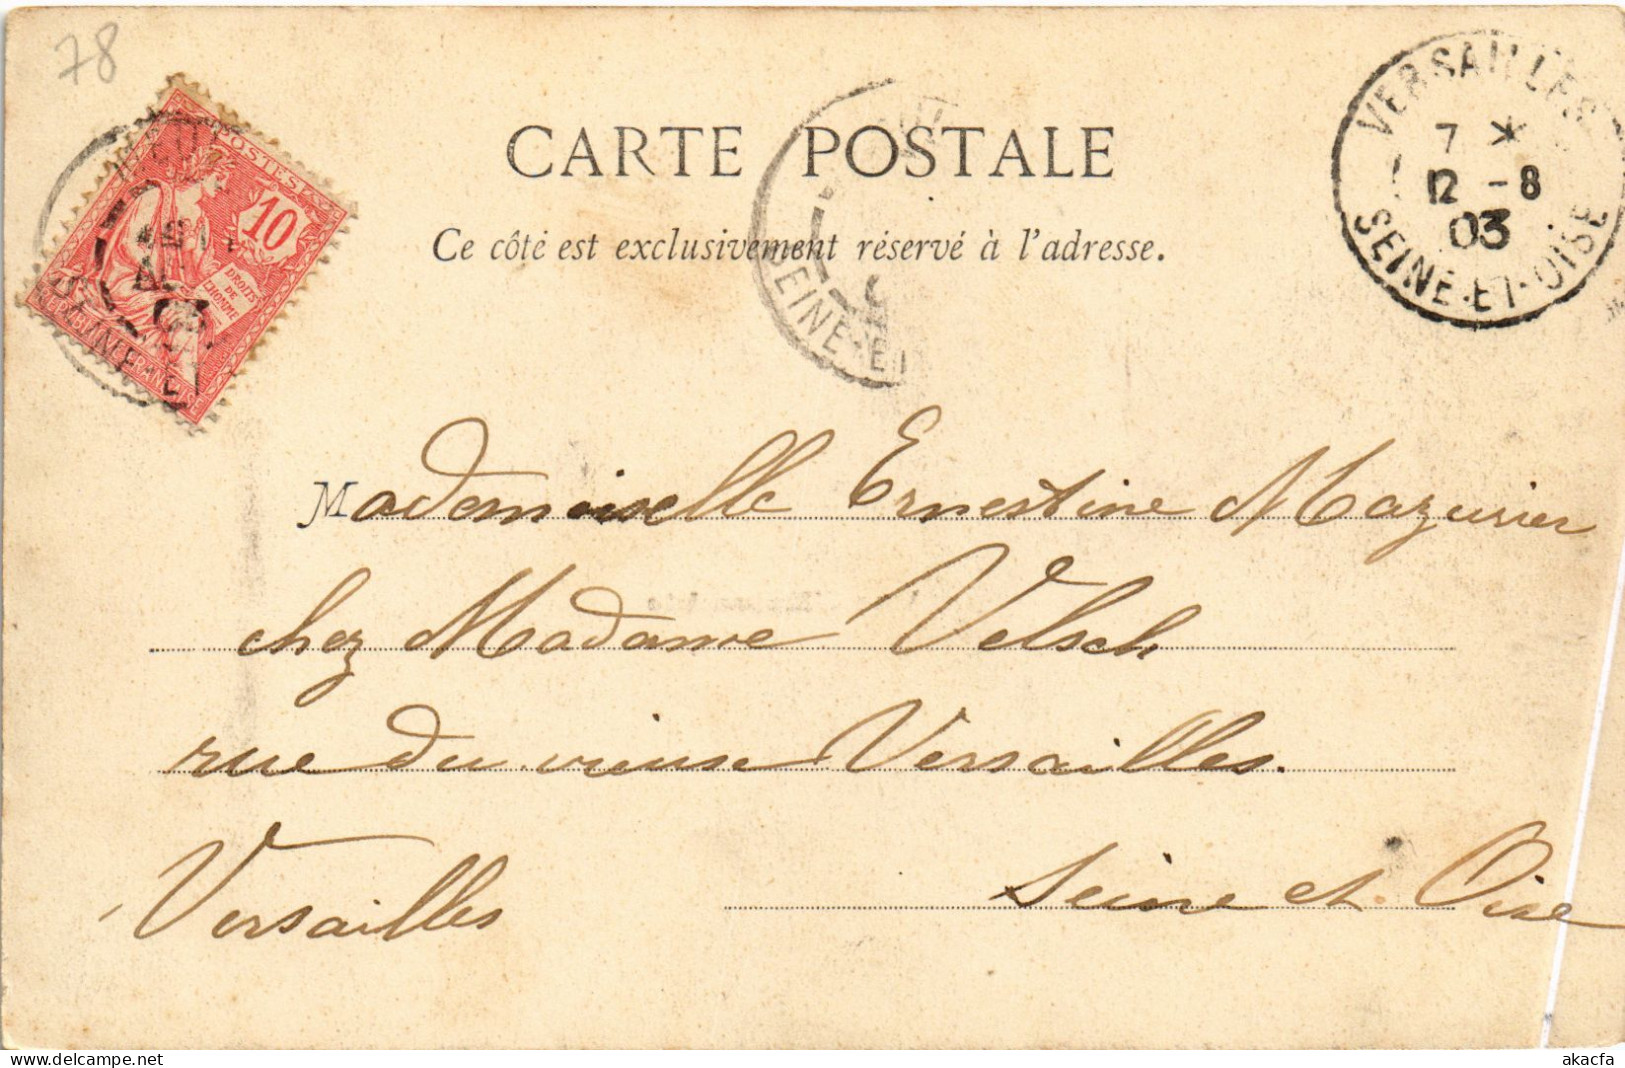 78
CARTE POSTALE
Ce côté est exclusivement réservé à l'adresse.
VERSAILLES
7 *
12 -8
03
SEINE-ET-OISE
POSTES
10
DROITS
DE
L'HOMME
FRANÇAISE
SEINE-ET
SEINE-ET
Mademoiselle Ernestine Mazurier
chez Madame Velsch
rue du vieux Versailles.
Versailles
Seine et Oise
akacfa